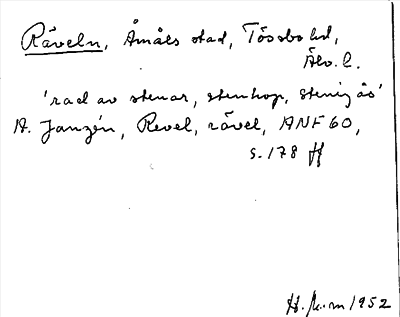 Räveln, Åmåls stad, Tössbo hd,
Älvsb. l.
'rad av stenar, stenhop, stenig ås'
A. Janzén, Revel, rävel, ANF 60,
s. 178 ff
1952